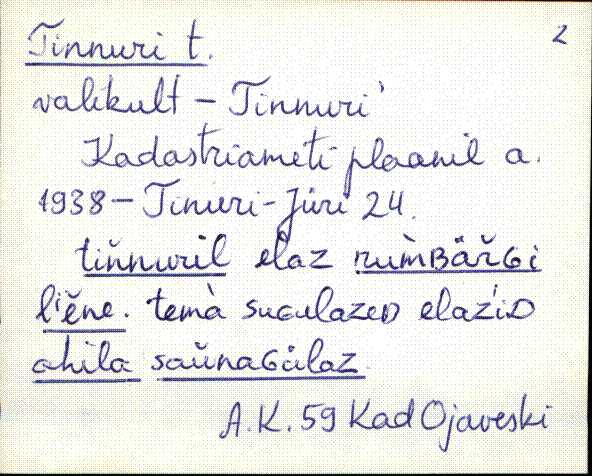 Tinnuri t. 2
valikult – Tinnuri'
Kadastriameti plaanil a.
1938 – Tinuri-Jüri 24.
tiňnuril elaz rum̀ʙäřɢi
l'ĕne. temà suɢulazeᴅ elaziᴅ
ahila saŭnaɢülaz.
A.K. 59 Kad Ojaveski